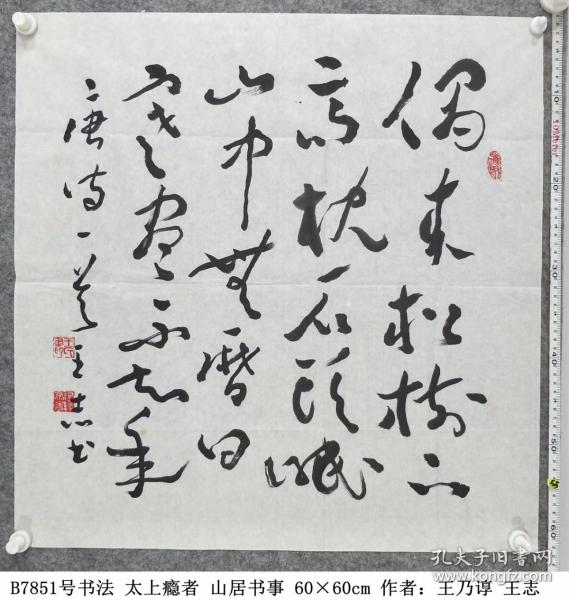 偶來松樹下
高枕石頭眠
山中無曆日
寒盡不知年
唐诗一首 王志书
孔夫子旧书网
B7851号书法 太上瘾者 山居书事 60×60cm 作者：王乃谆 王志